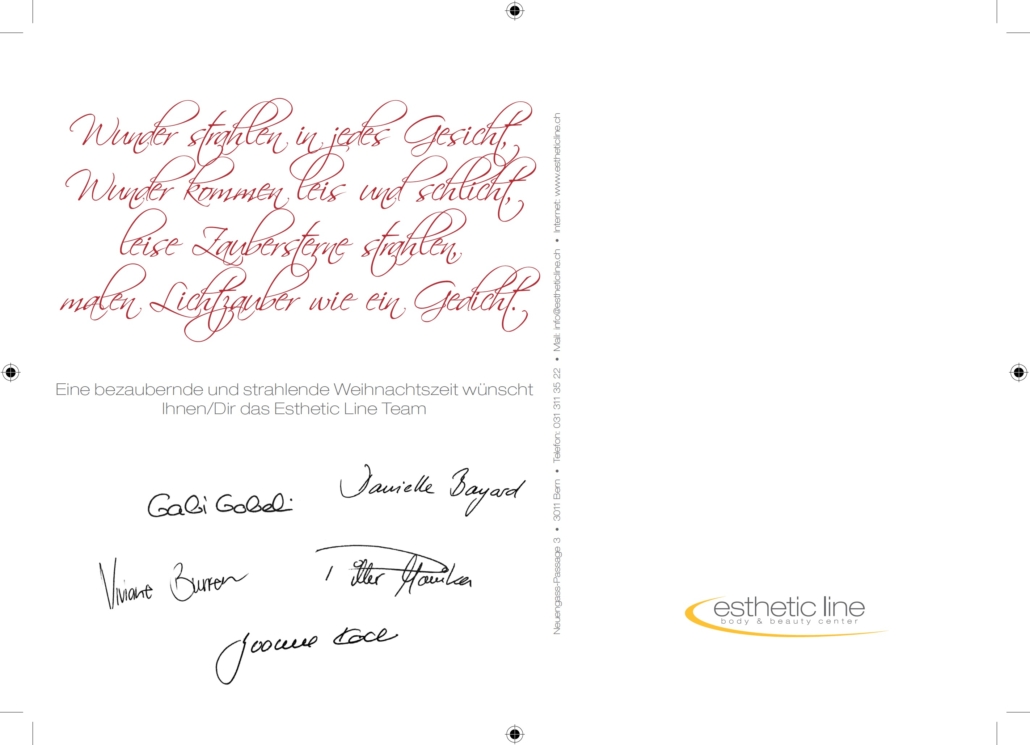 Wunder strahlen in jedes Gesicht,
Wunder kommen leis und schlicht,
leise Zaubersterne strahlen,
malen Lichtzauber wie ein Gedicht.
Eine bezaubernde und strahlende Weihnachtszeit wünscht
Ihnen/Dir das Esthetic Line Team
Gabi Gobeli
Danielle Bayard
Viviane Burren
Neuengass-Passage 3 • 3011 Bern • Telefon: 031 311 35 22 • Mail: info@estheticline.ch • Internet: www.estheticline.ch
esthetic line
body & beauty center